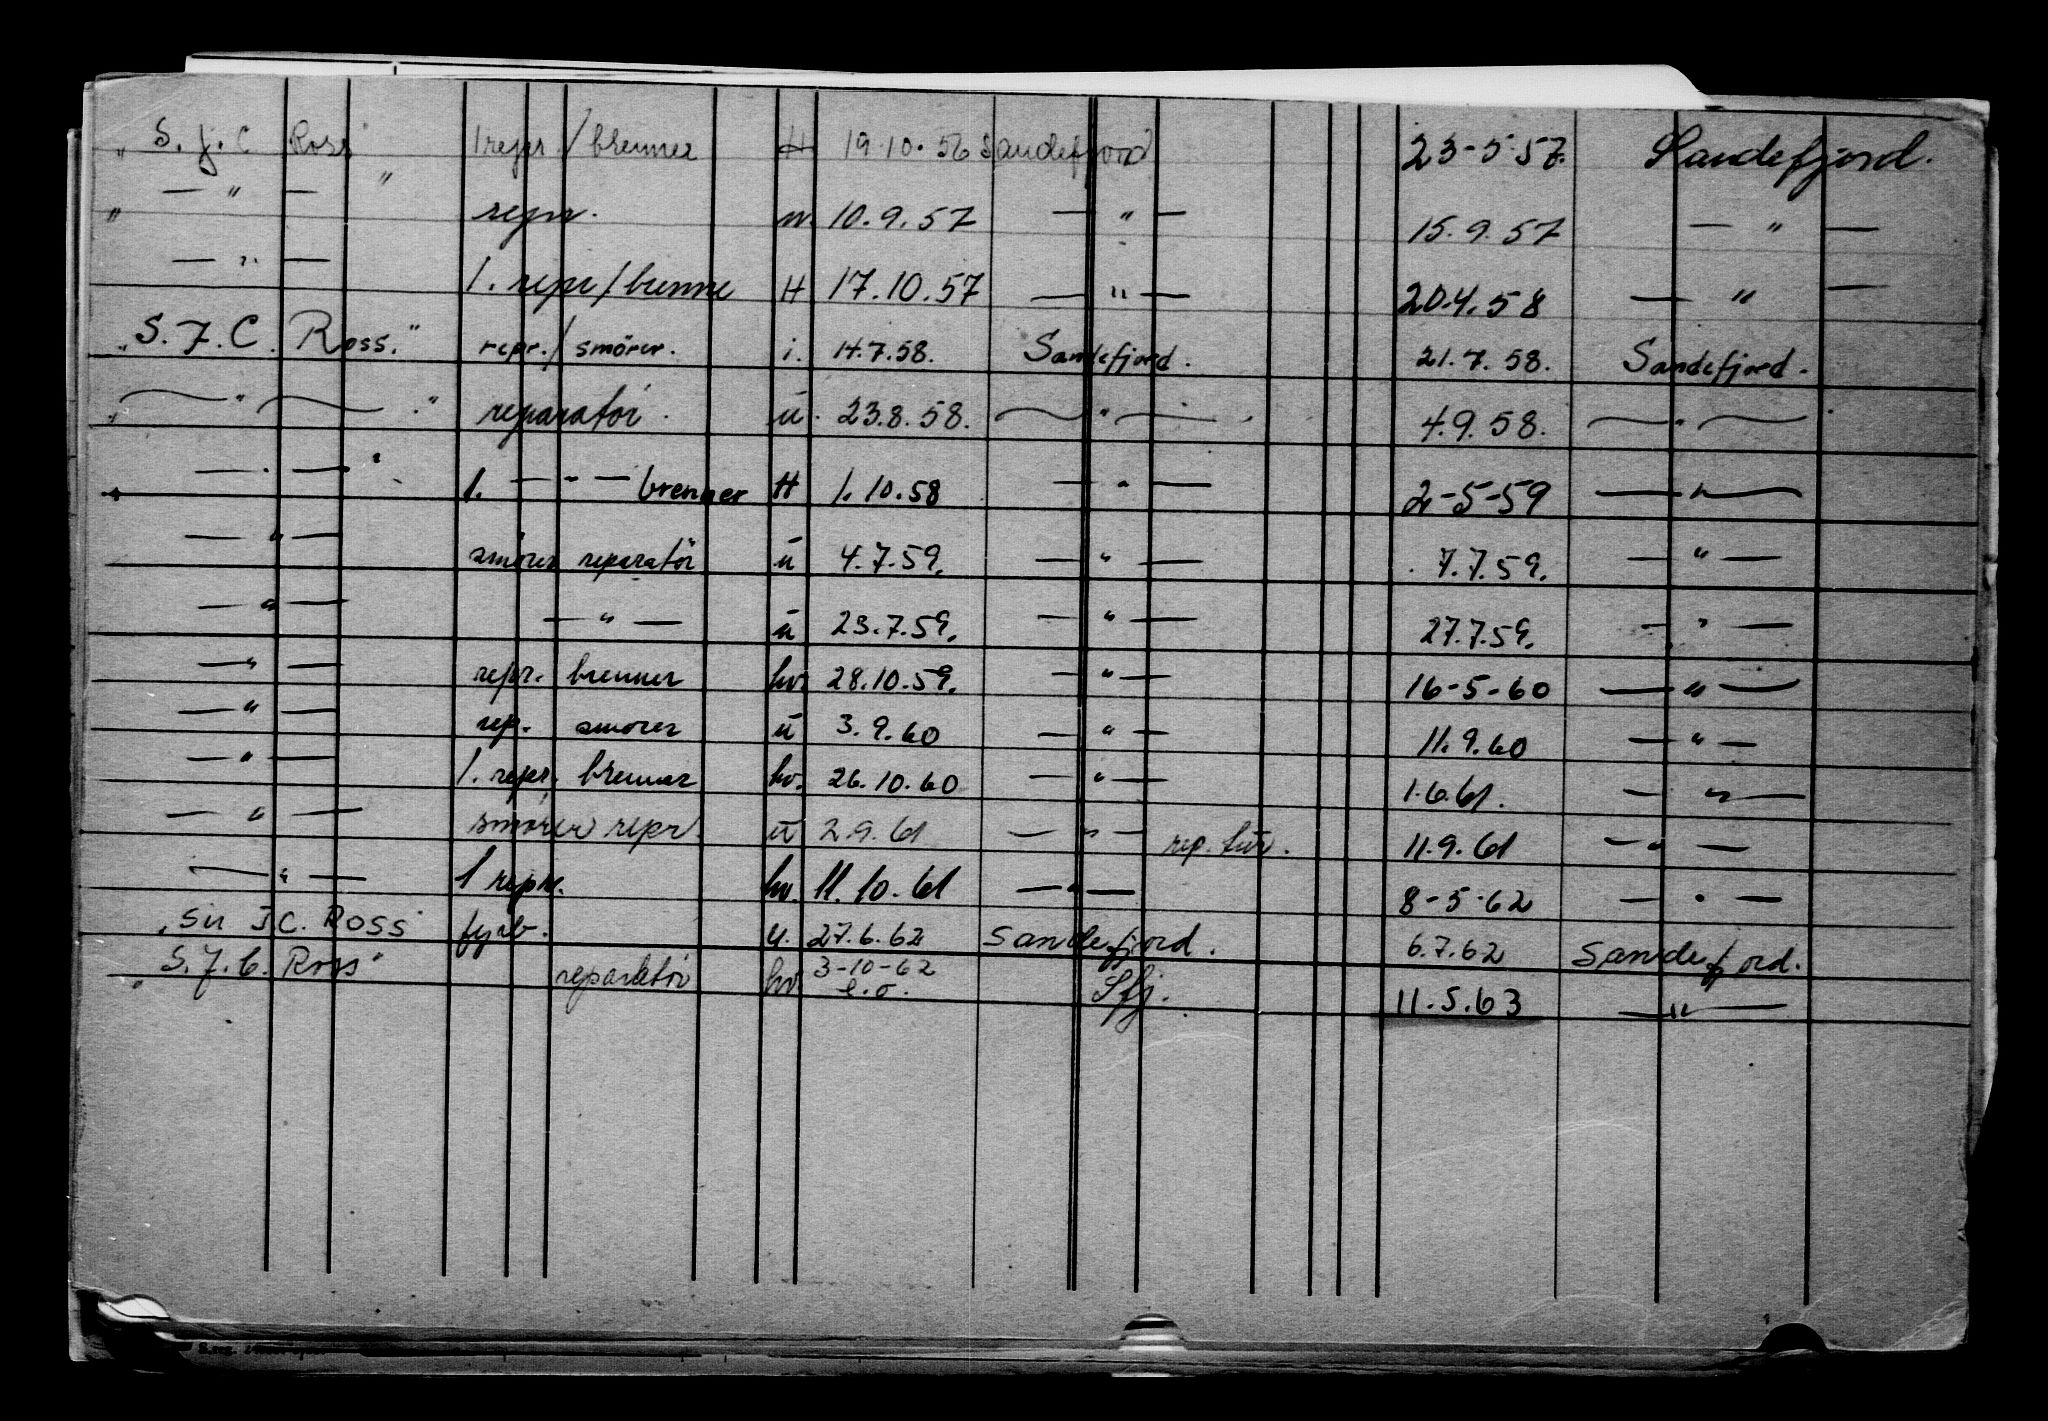 „ S. J. C Ross" 1 repr / brenner H 19.10.56 Sandefjord 23-5-57. Sandefjord.
„ — " — " repr. m 10.9.57 — " — 15.9.57 — " —
— " — 1. repr / brenne H 17.10.57 — " — 20.4.58 — " —
„S. J. C. Ross." repr. / smörer. i. 14.7.58. Sandefjord. 21.7.58. Sandefjord.
„ — " — " reparatör. ü. 23.8.58. — " — 4.9.58. — " —
— " — " 1. — " — brenner H 1.10.58 — " — 2-5-59 — " —
— " — smörer reparatör ü 4.7.59. — " — 7.7.59. — " —
— " — — " — ü 23.7.59. — " — 27.7.59. — " —
— " — repr. brenner hv. 28.10.59. — " — 16-5-60 — " —
— " — rep. smörer ü 3.9.60 — " — 11.9.60 — " —
— " — 1. repr. brenner hv. 26.10.60 — " — 1.6.61. — " —
— " — smörer repr. ü 2.9.61 — " — rep. tür. 11.9.61 — " —
— " — 1 repr. hv. 11.10.61 — " — 8-5-62 — " —
„Sir J C. ROSS" u. 27.6.62 Sandefjord. 6.7.62 Sandefjord.
„S. J. C. Ross" reparatör hv 3-10-62 Sfj. 11.5.63 — " —
e.o.